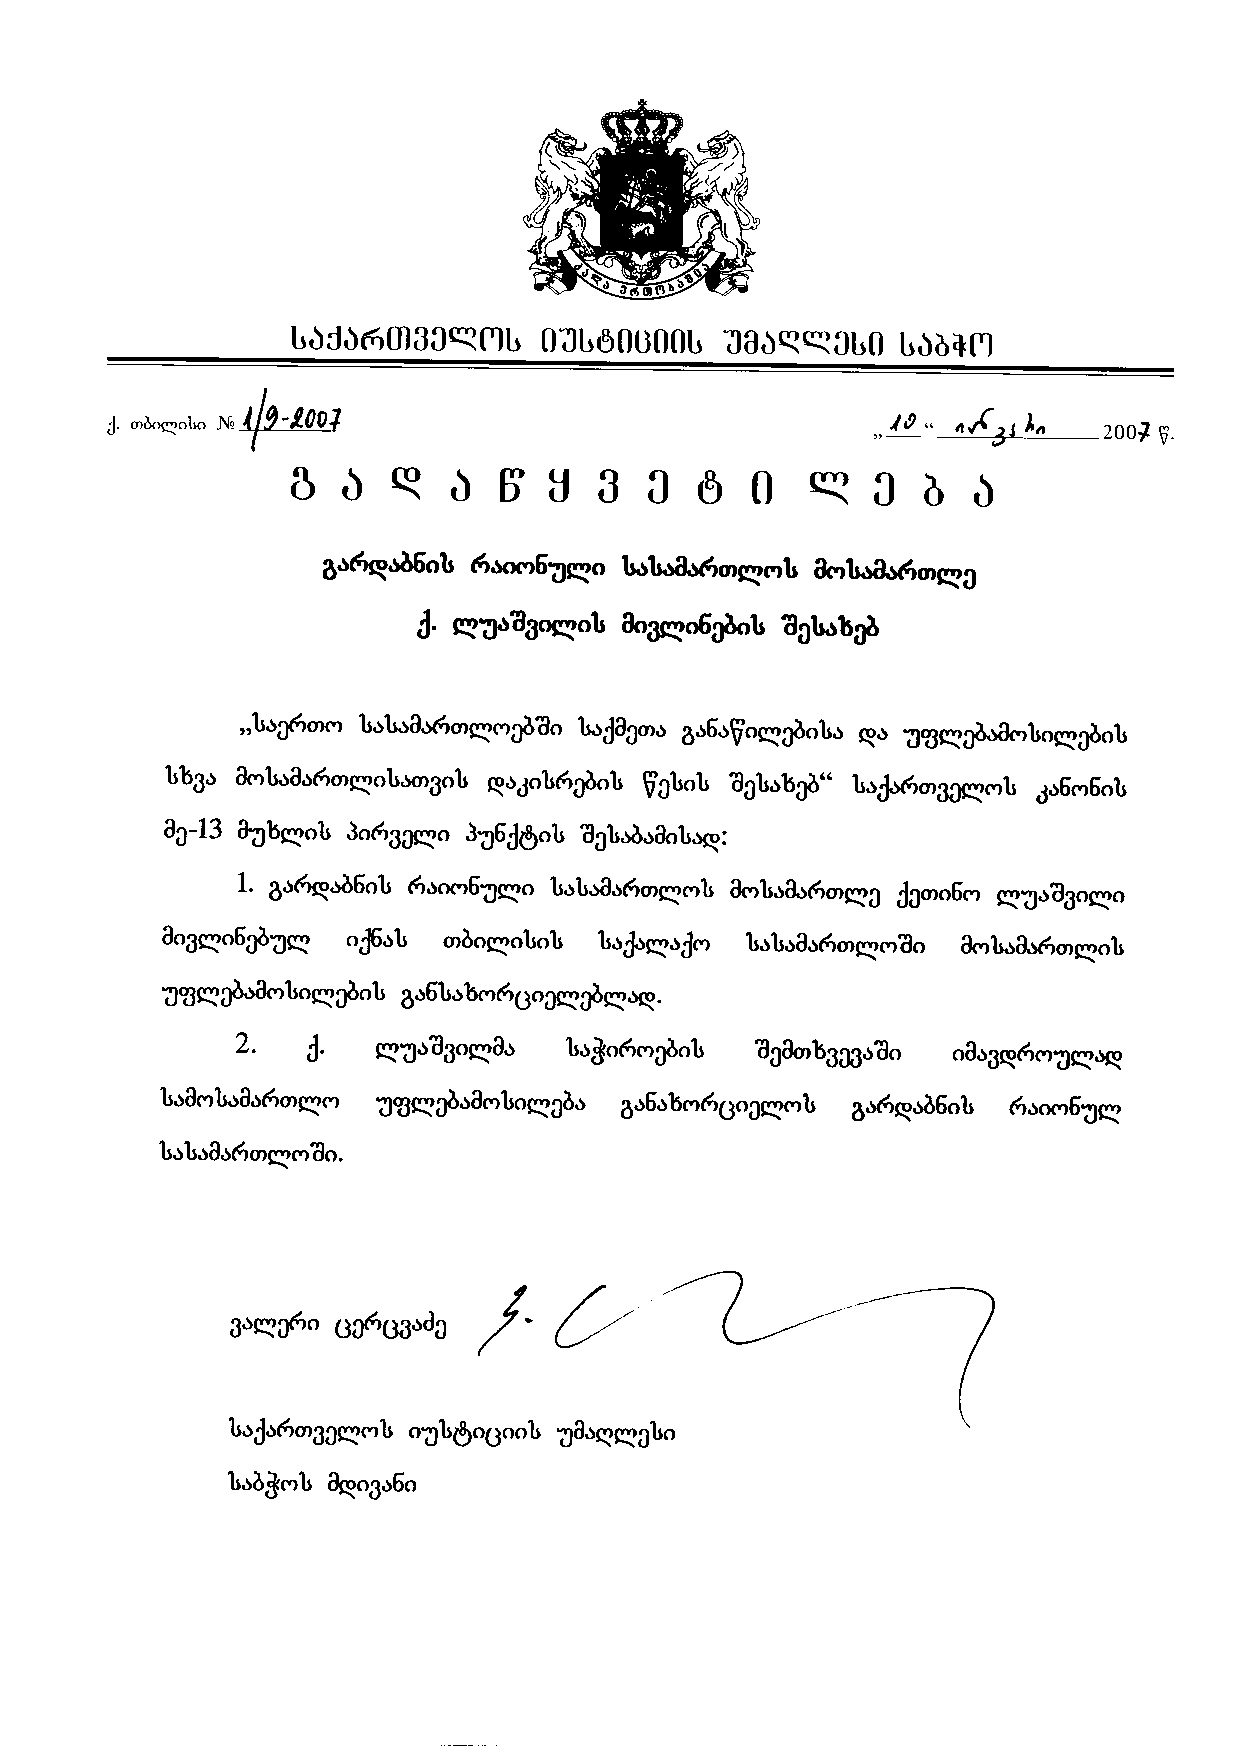 ძალა ერთობაშია
საქართველოს იუსტიციის უმაღლესი საბჭო
ქ. თბილისი № 1/9-2007 „10“ იანვარი 2007 წ.
გ ა დ ა წ ყ ვ ე ტ ი ლ ე ბ ა
გარდაბნის რაიონული სასამართლოს მოსამართლე
ქ. ლუაშვილის მივლინების შესახებ
„საერთო სასამართლოებში საქმეთა განაწილებისა და უფლებამოსილების
სხვა მოსამართლისათვის დაკისრების წესის შესახებ“ საქართველოს კანონის
მე-13 მუხლის პირველი პუნქტის შესაბამისად:
1. გარდაბნის რაიონული სასამართლოს მოსამართლე ქეთინო ლუაშვილი
მივლინებულ იქნას თბილისის საქალაქო სასამართლოში მოსამართლის
უფლებამოსილების განსახორციელებლად.
2. ქ. ლუაშვილმა საჭიროების შემთხვევაში იმავდროულად
სამოსამართლო უფლებამოსილება განახორციელოს გარდაბნის რაიონულ
სასამართლოში.
ვალერი ცერცვაძე
საქართველოს იუსტიციის უმაღლესი
საბჭოს მდივანი